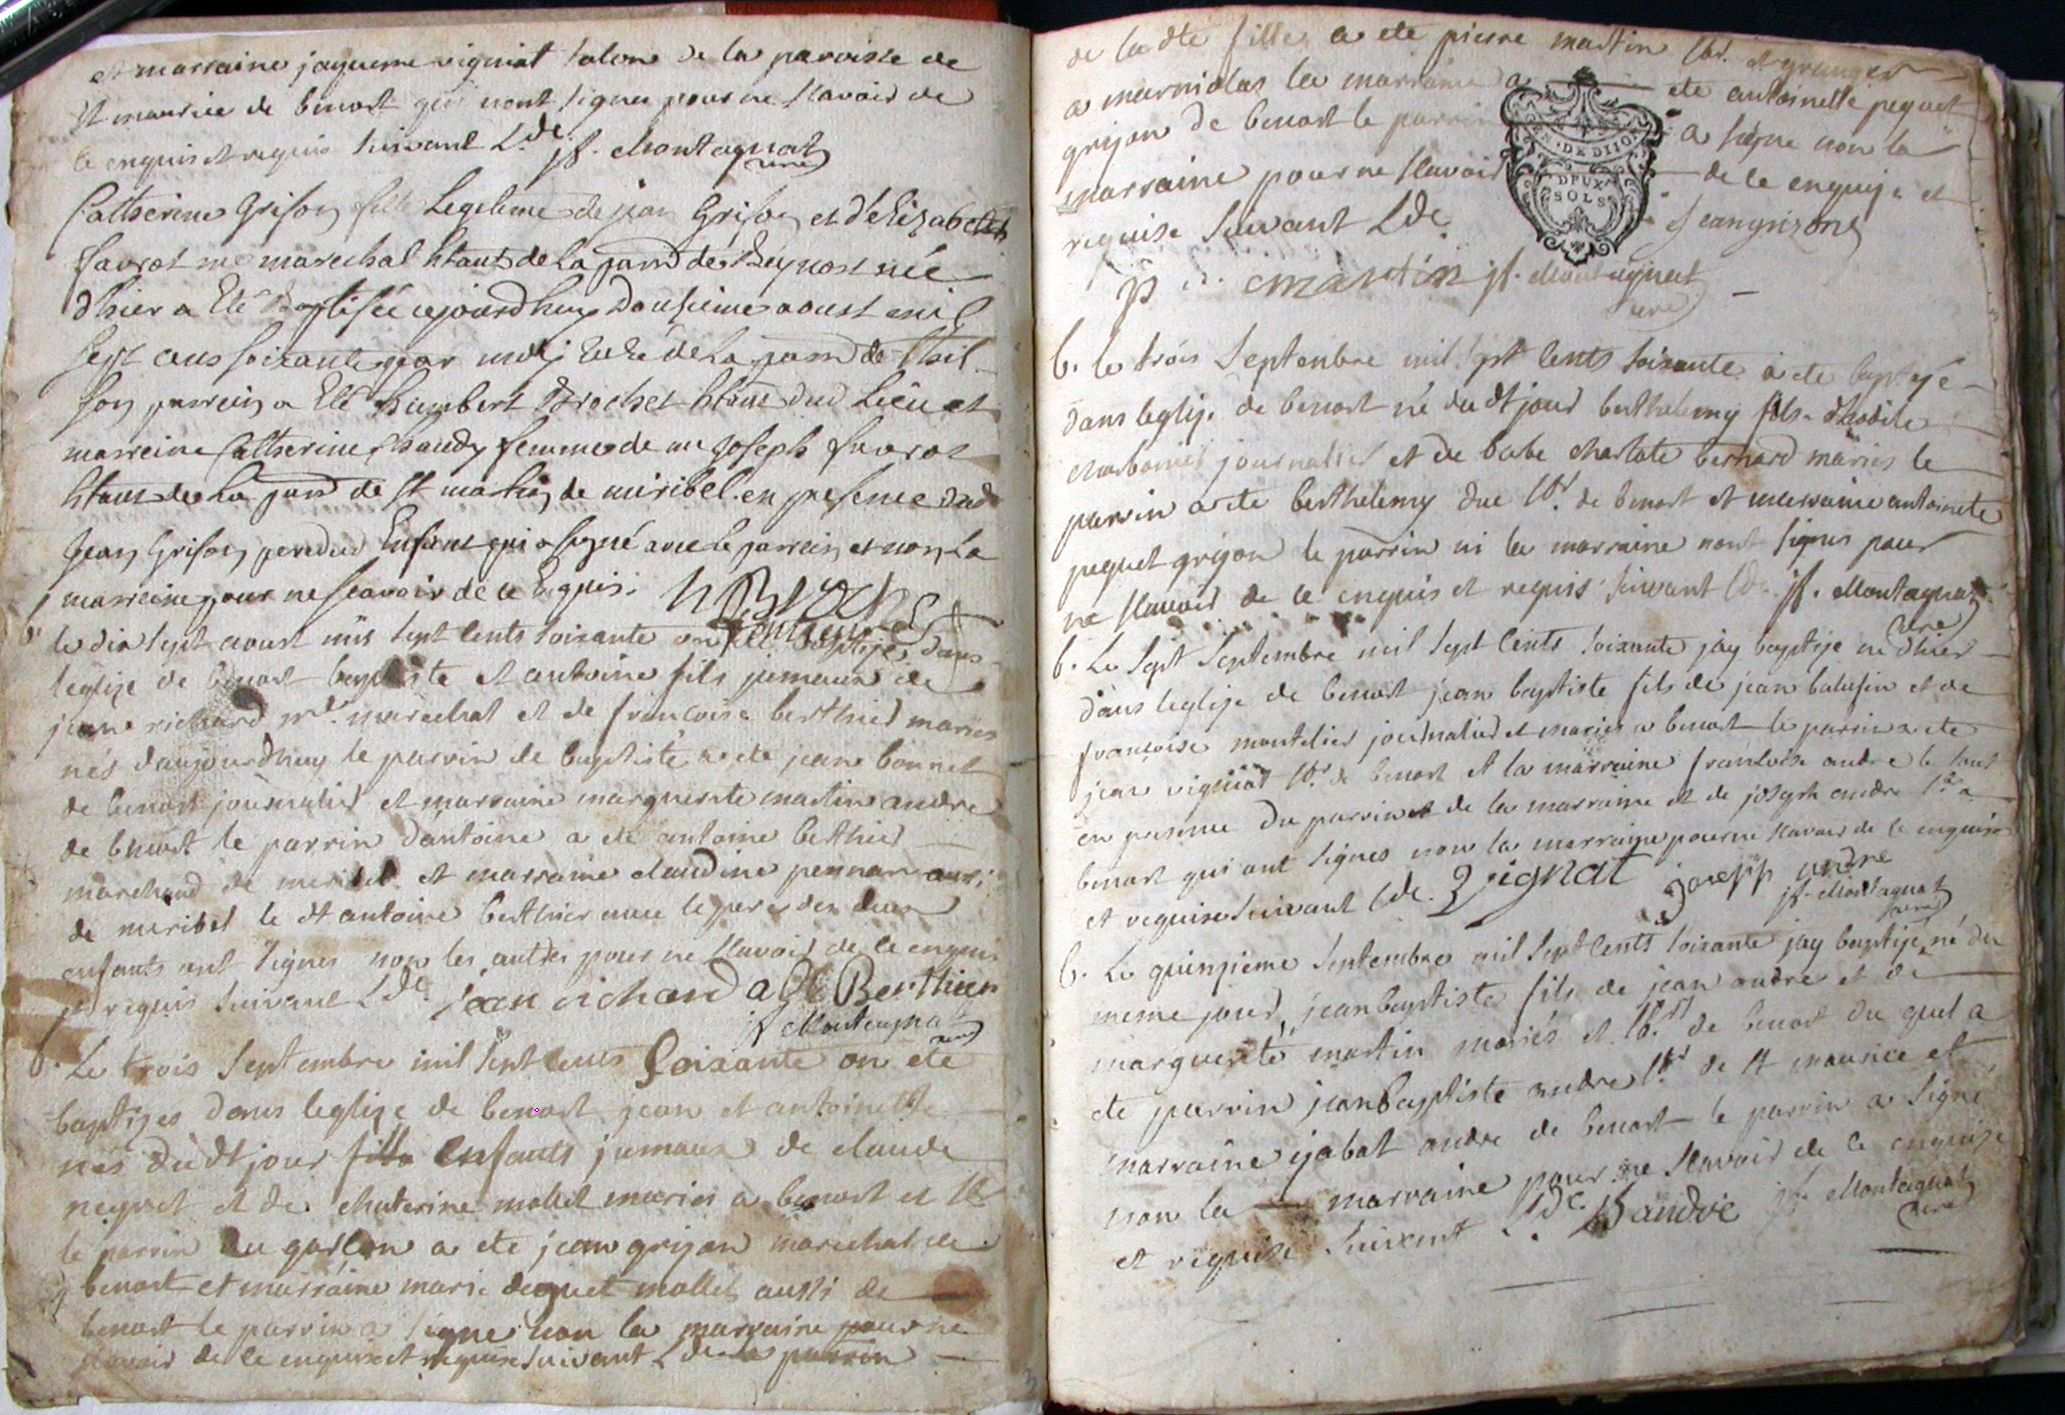 et marraine jaqueme vigniat talon de la paroisse de
st maurice de benost qui nont signes pour ne scavoir de
ce enquis et requis suivant L'de. jf. Montagnat
curé
Catherine Grison fille Legitime de jean Grison et d'Elizabeth
favrot me marechal htant de La parr de Beynost née
d'hier a Eté Baptisée cejourdhuy Douzieme aoust mil
sept cens soixante par moy Curé de La parr de Thil
son parrein a Eté humbert Brochet htant dud Lieu et
marreine Catherine chaudy femme de me Joseph favrot
htant de La parr de st martin de miribel en presence dud
Jean Grison pere dud Enfant qui a signé avec le parrein et non La
marreine pour ne scavoir de ce Enquis.
b. le dix sept aoust mil sept cents soixante on ete baptizes dans
leglize de benost baptiste et antoine fils jumeaux de
jean richard me marechal et de francoise berthier maries
nés daujourdhuy le parrin de baptiste a ete jean bonnet
de benost journalier et marraine marguerite martin andre
de benost le parrin dantoine a ete antoine berthier
marchand de miribel et marraine claudine pennan aussi
de miribel le dt antoine berthier avec le pere des deux
enfants ont signes non les autres pour ne scavoir de ce enquis
et requis suivant L'de. jean richard a Berthier
jf Montagnat
curé
b. Le trois septembre mil sept cents soixante on ete
baptizes dans leglize de benost jean et antoinette
nés du dt jour enfants jumaux de claude
pequet et de chaterine mollet maries a benost et
le parrin du garcon a ete jean grizon marechal de
benost et marraine marie pequet mollet aussi de
benost le parrin a signe non la marraine pour ne
scavoir de ce enquise et requise suivant L'de le parrin
de la dte fille a ete pierre martin hbt et granger
a marniolas la marraine a ete antoinette pequet
grizon de benost le parrin a signe non la
marraine pour ne scavoir de ce enquise et
requise suivant L'de. jean grizon
DE DIJON
DEUX
SOLS
p martin jf. Montagnat
curé
b. le trois septembre mil sept cents soixante a ete baptizé
dans leglize de benost né du dt jour berthelemy fils
journalier et de babe charlote bernard mariés le
parrin a ete berthelemy duc hbt de benost et marraine antoinete
pequet grizon le parrin ni la marraine nont signes pour
ne scavoir de ce enquis et requis suivant L'de jf. Montagnat
curé
b. Le sept septembre mil sept cents soixante jay baptize né dhier
dans leglize de benost jean baptiste fils de jean balufin et de
françoise montelier journalier et maries a benost le parrin a ete
jean vigniat hbt de benost et la marraine francoise andre le tout
en presence du parrin et de la marraine et de joseph andre hbt a
benost qui ont signes non la marraine pour ne scavoir de ce enquise
et requise suivant L'de. J vignat joseph andre
jf. Montagnat
curé
b. Le quinzieme septembre mil sept cents soixante jay baptizé né du
meme jour jean baptiste fils de jean andre et de
marguerite martin mariés et hbts de benost du quel a
ete parrin jean baptiste andre hbt de st maurice et
marraine izabat andre de benost le parrin a signé
non la marraine pour ne scavoir de ce enquise
et requise suivant L'de. B andré jf Montagnat
curé